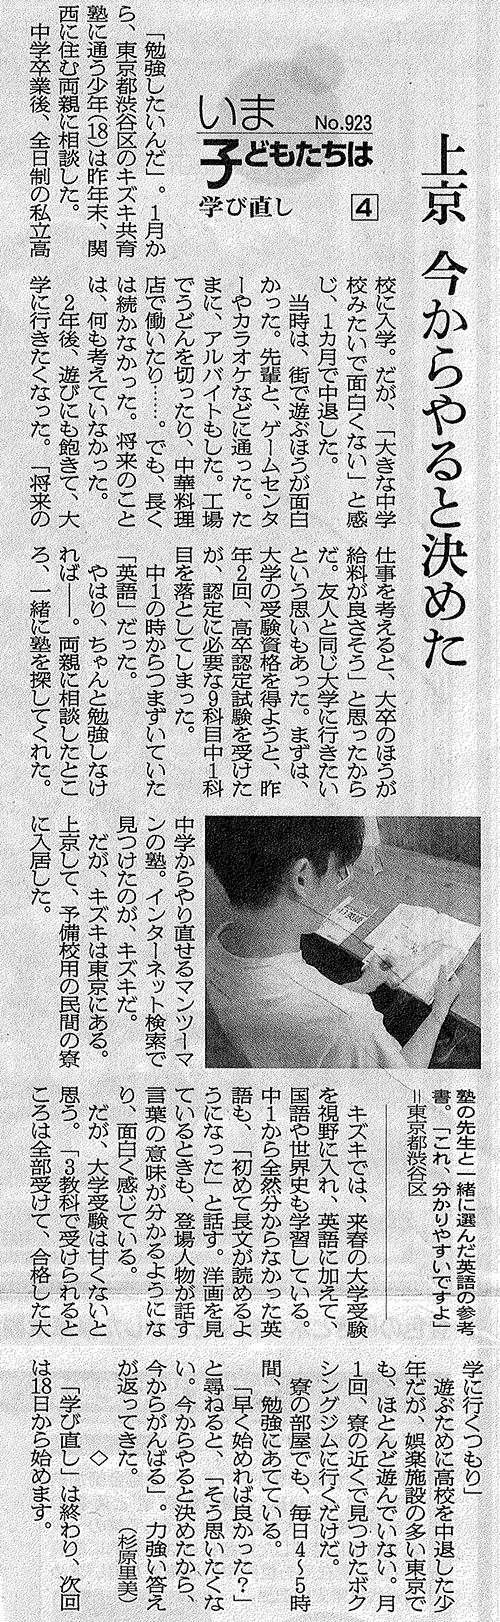 上京 今からやると決めた
いま
子どもたちは
No.923
学び直し
4
「勉強したいんだ」。1月か
ら、東京都渋谷区のキズキ共育
塾に通う少年(18)は昨年末、関
西に住む両親に相談した。
中学卒業後、全日制の私立高
校に入学。だが、「大きな中学
校みたいで面白くない」と感
じ、1カ月で中退した。
当時は、街で遊ぶほうが面白
かった。先輩と、ゲームセンタ
ーやカラオケなどに通った。た
まに、アルバイトもした。工場
でうどんを切ったり、中華料理
店で働いたり……。でも、長く
は続かなかった。将来のこと
は、何も考えていなかった。
2年後、遊びにも飽きて、大
学に行きたくなった。「将来の
仕事を考えると、大卒のほうが
給料が良さそう」と思ったから
だ。友人と同じ大学に行きたい
という思いもあった。まずは、
大学の受験資格を得ようと、昨
年2回、高卒認定試験を受けた
が、認定に必要な9科目中1科
目を落としてしまった。
中1の時からつまずいていた
「英語」だった。
やはり、ちゃんと勉強しなけ
れば――。両親に相談したとこ
ろ、一緒に塾を探してくれた。
中学からやり直せるマンツーマ
ンの塾。インターネット検索で
見つけたのが、キズキだ。
だが、キズキは東京にある。
上京して、予備校用の民間の寮
に入居した。
塾の先生と一緒に選んだ英語の参考
書。「これ、分かりやすいですよ」
＝東京都渋谷区
キズキでは、来春の大学受験
を視野に入れ、英語に加えて、
国語や世界史も学習している。
中1から全然分からなかった英
語も、「初めて長文が読めるよ
うになった」と話す。洋画を見
ているときも、登場人物が話す
言葉の意味が分かるようにな
り、面白く感じている。
だが、大学受験は甘くないと
思う。「3教科で受けられると
ころは全部受けて、合格した大
学に行くつもり」
遊ぶために高校を中退した少
年だが、娯楽施設の多い東京で
も、ほとんど遊んでいない。月
1回、寮の近くで見つけたボク
シングジムに行くだけだ。
寮の部屋でも、毎日4～5時
間、勉強にあてている。
「早く始めれば良かった？」
と尋ねると、「そう思いたくな
い。今からやると決めたから、
今からがんばる」。力強い答え
が返ってきた。
（杉原里美）
◇
「学び直し」は終わり、次回
は18日から始めます。